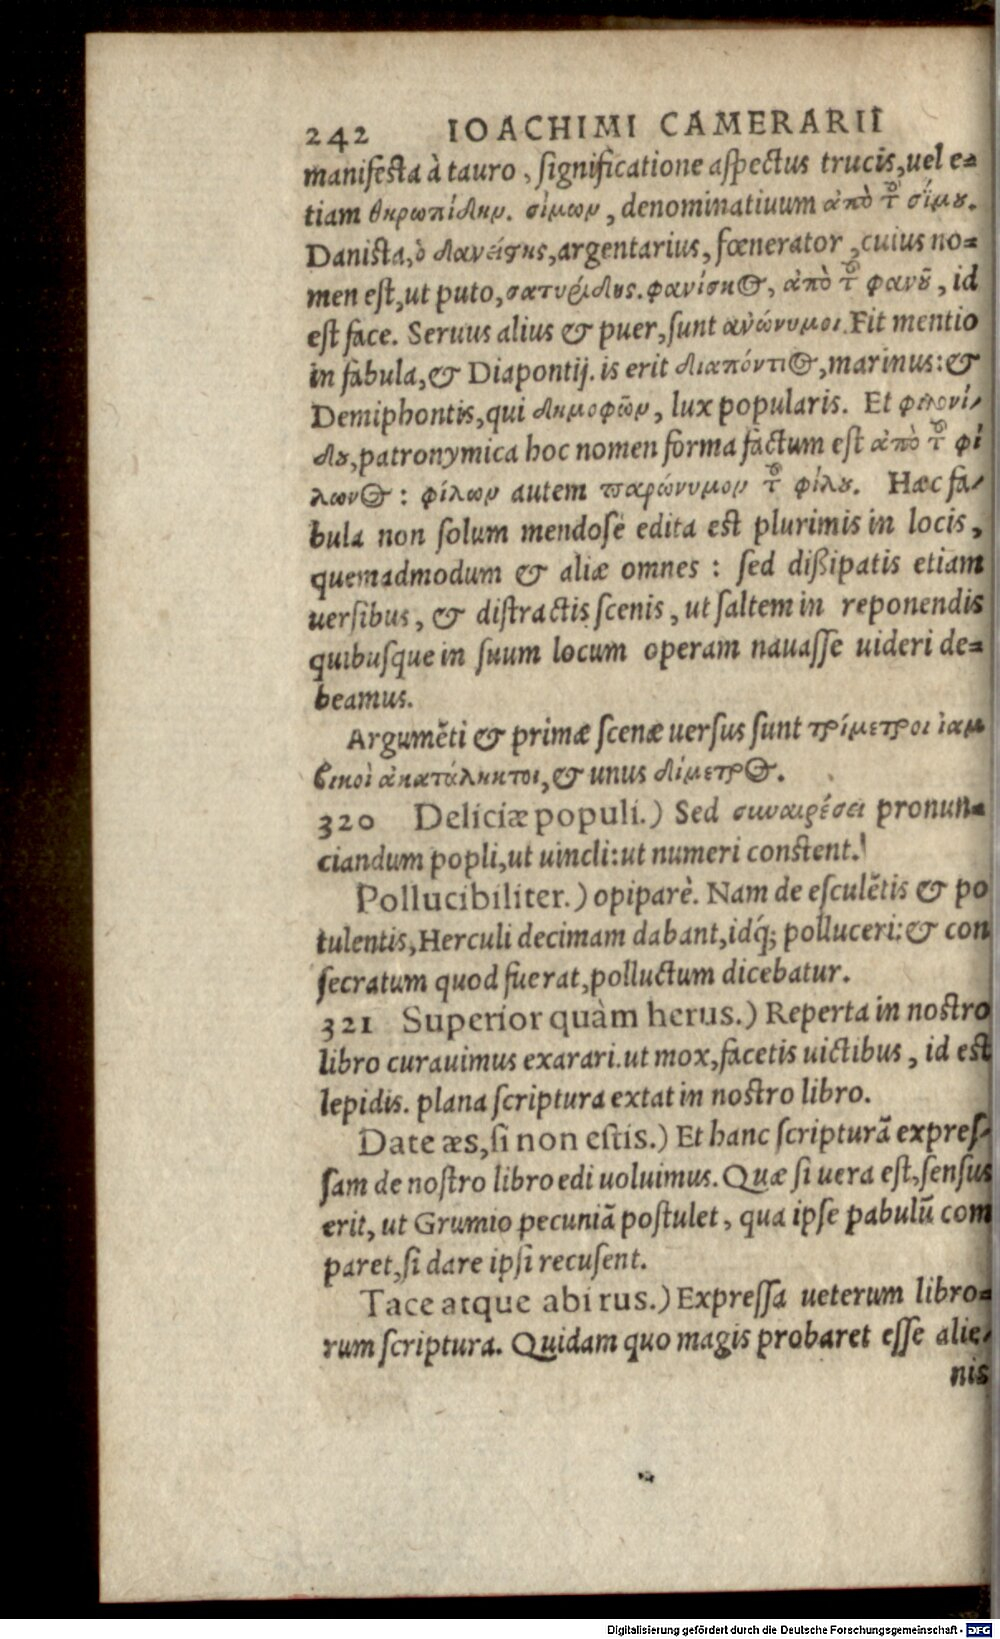 242 IOACHIMI CAMERARII
manifesta à tauro, significatione aspectus trucis, uel e=
tiam θηρωπίδην. σίμων, denominatiuum ἀπὸ τ̃ σίμου.
Danista, ὁ δανείστης, argentarius, fœnerator, cuius no=
men est, ut puto, σατυρίδης. φανίσκος, ἀπὸ τ̃ φανοῦ, id
est face. Seruus alius & puer, sunt ἀνώνυμοι. Fit mentio
in fabula, & Diapontij. is erit διαπόντιος, marinus: &
Demiphontis, qui δημοφῶν, lux popularis. Et φιλονί-
δου, patronymica hoc nomen forma factum est ἀπὸ τ̃ φί
λωνος: φίλων autem παρώνυμον τ̃ φίλου. Hæc fa-
bula non solum mendose edita est plurimis in locis,
quemadmodum & aliæ omnes: sed dißipatis etiam
uersibus, & distractis scenis, ut saltem in reponendis
quibusque in suum locum operam nauasse uideri de=
beamus.
Argumẽti & primæ scenæ uersus sunt τρίμετροι ἰαμ
βικοὶ ἀκατάληκτοι, & unus δίμετρος.
320 Deliciæ populi.) Sed συναιρέσει pronun=
ciandum popli, ut uincli: ut numeri constent.
Pollucibiliter.) opiparè. Nam de esculẽtis & po
tulentis, Herculi decimam dabant, idq́; polluceri: & con
secratum quod fuerat, polluctum dicebatur.
321 Superior quàm herus.) Reperta in nostro
libro curauimus exarari. ut mox, facetis uictibus, id est
lepidis. plana scriptura extat in nostro libro.
Date æs, si non estis.) Et hanc scripturã expres-
sam de nostro libro edi uoluimus. Quæ si uera est, sensus
erit, ut Grumio pecuniã postulet, qua ipse pabulũ com
paret, si dare ipsi recusent.
Tace atque abi rus.) Expressa ueterum libro=
rum scriptura. Quidam quo magis probaret esse alie-
nis
Digitalisierung gefördert durch die Deutsche Forschungsgemeinschaft - DFG